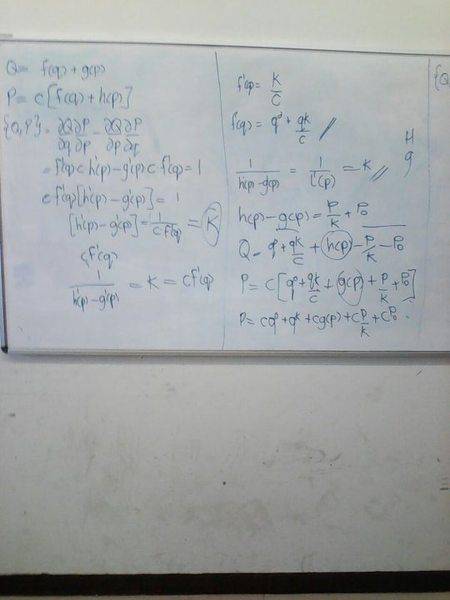 Q = f(q) + g(p)
P = c[f(q) + h(p)]
{Q,P} = ∂Q∂P/∂q∂p - ∂Q∂P/∂p∂q
= f'(q) c h'(p) - g'(p) c f'(q) = 1
c f'(q) [h'(p) - g'(p)] = 1
[h'(p) - g'(p)] = 1/cf'(q) = K
cf'(q)
1/h'(p) - g'(p) = K = cf'(q)
f'(q) = K/c
f(q) = q° + qk/c //
1/h'(p) - g'(p) = 1/L'(p) = K //
h(p) - g(p) = p/k + P₀
Q = q° + qk/c + h(p) - p/k - P₀
P = c[q° + qk/c + g(p) + p/k + P₀]
P = cq° + qk + cg(p) + cp/k + cP₀.
H
g
{Q